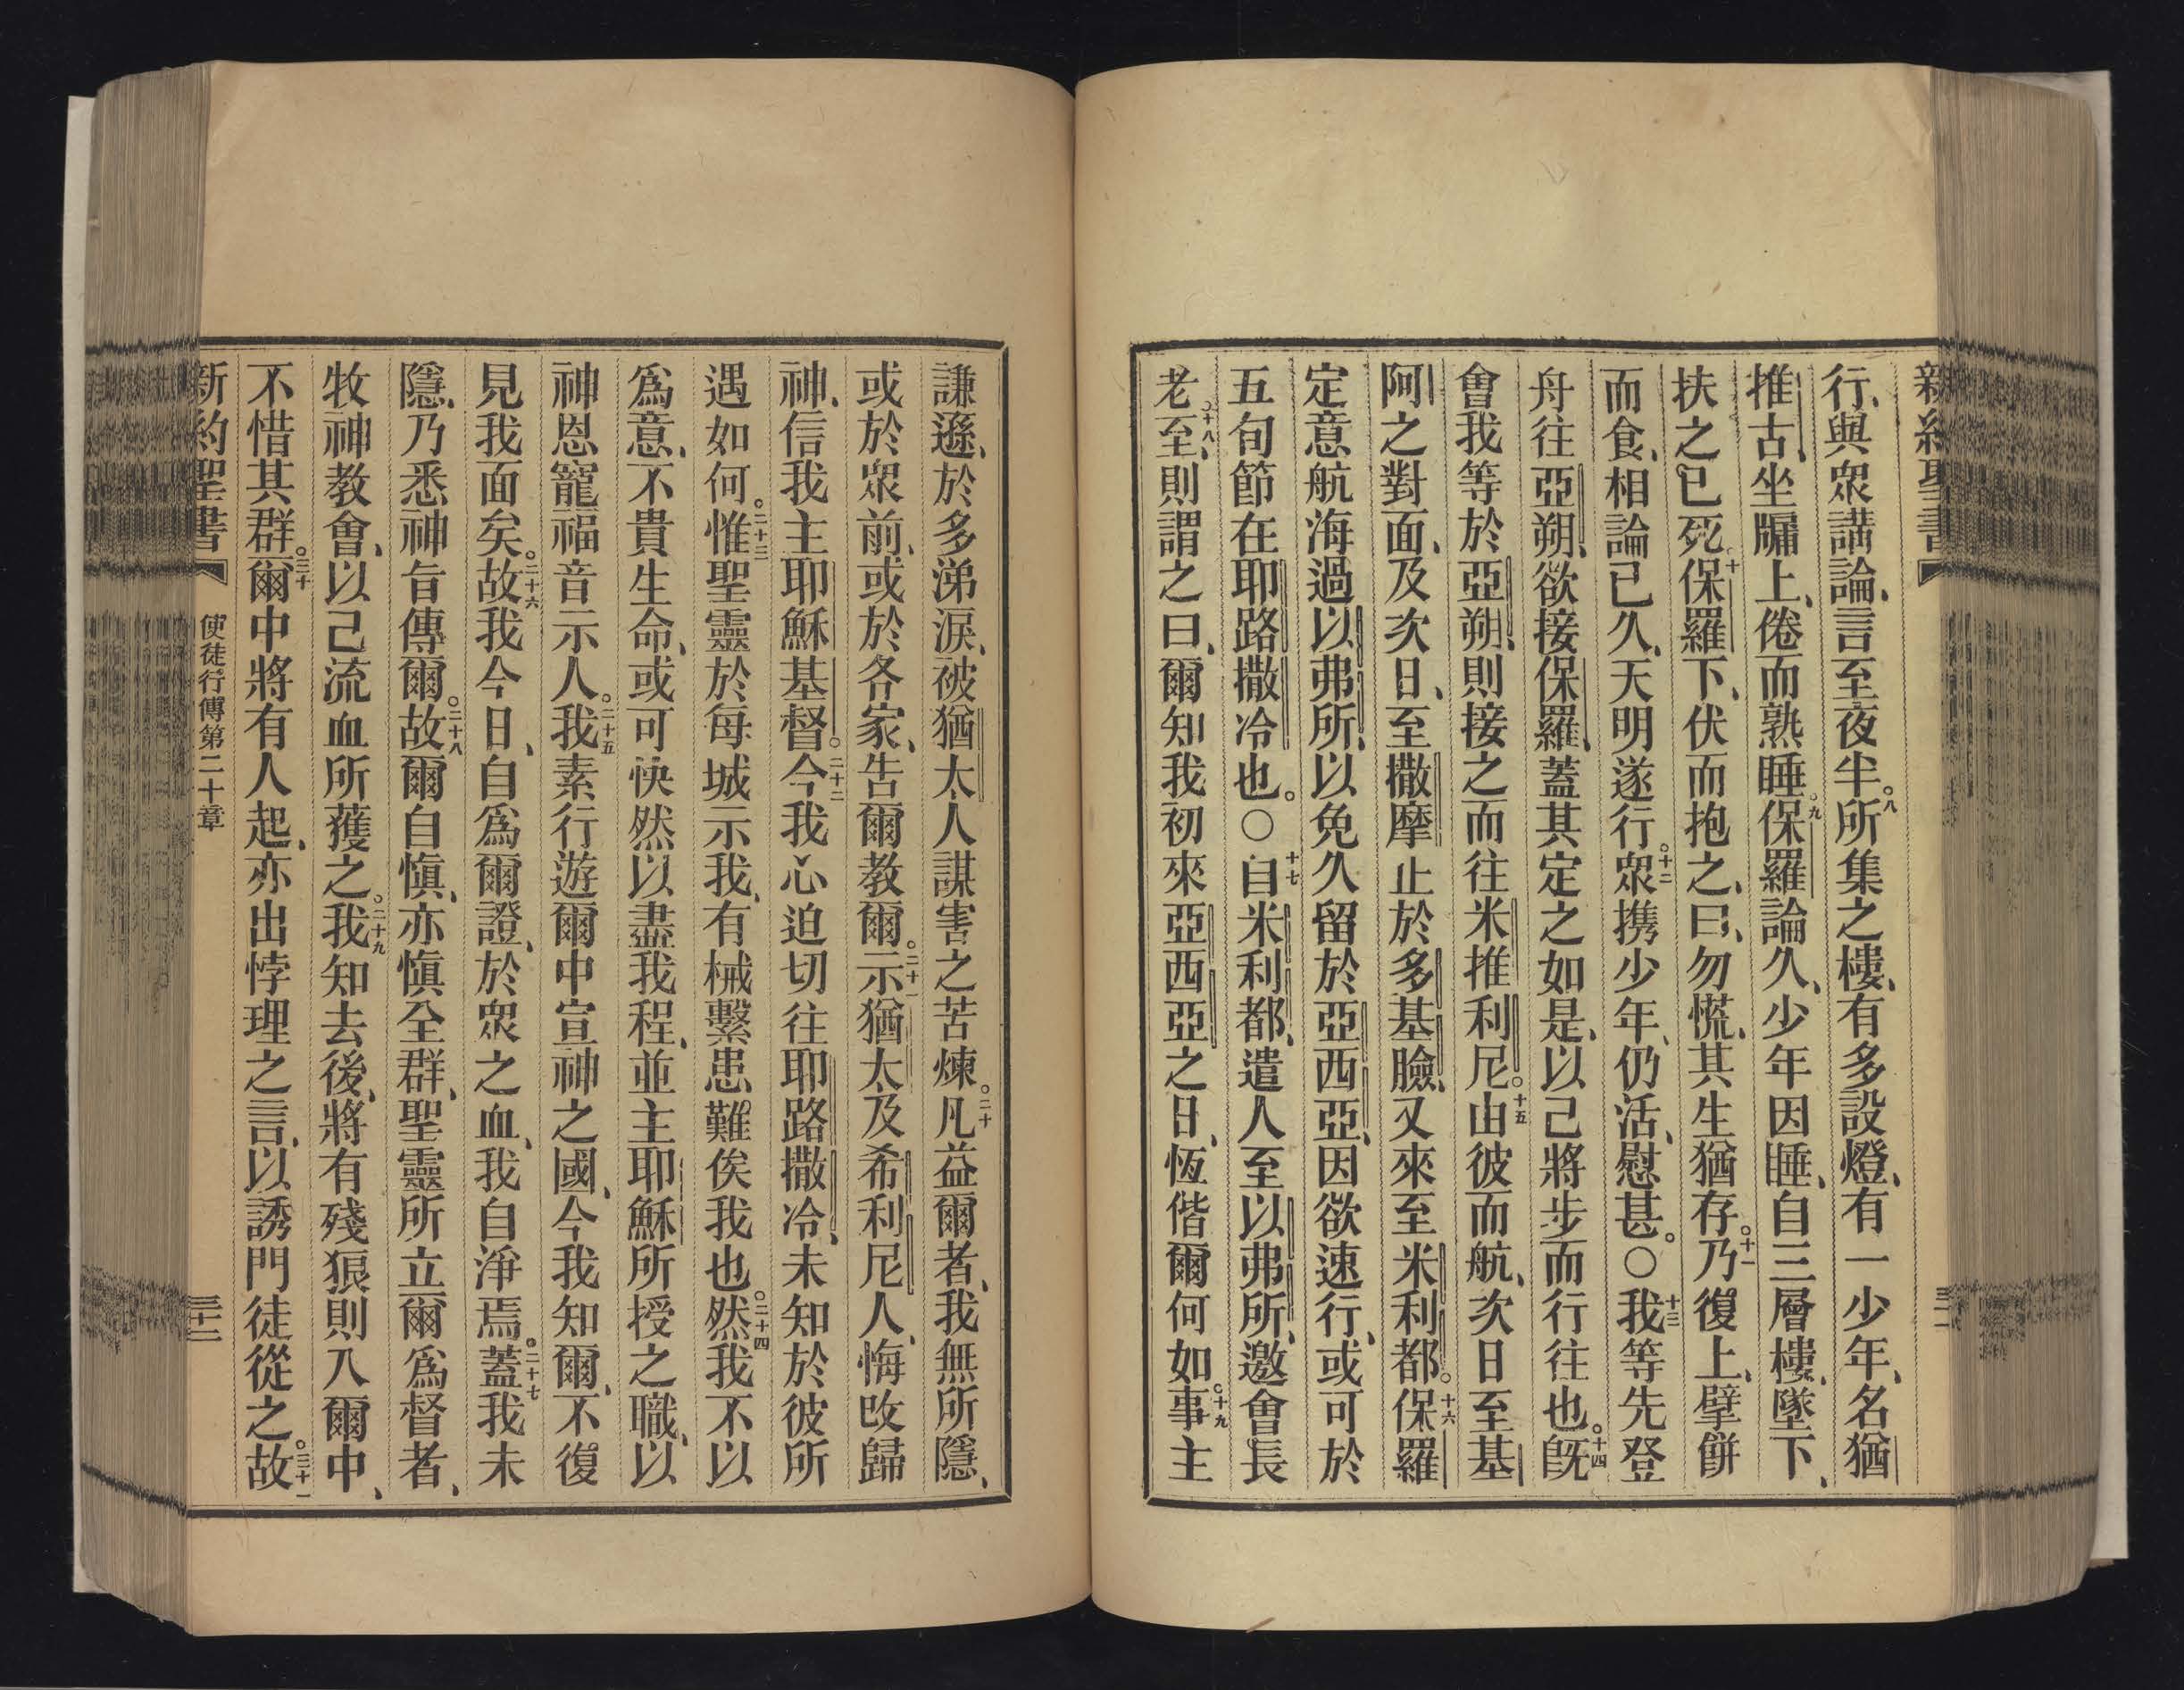 新約聖書
行、與眾講論、言至夜半。八所集之樓、有多設燈、有一少年、名猶
推古、坐牖上、倦而熟睡。九保羅論久、少年因睡、自三層樓、墜下、
扶之已死。十保羅下、伏而抱之、曰、勿慌、其生猶存。十一乃復上、擘餅
而食、相論已久、天明遂行。十二眾携少年、仍活、慰甚。〇十三我等先登
舟往亞朔、欲接保羅、蓋其定之如是、以己將步而行往也。十四旣
會我等於亞朔、則接之而往米推利尼。十五由彼而航、次日至基
阿之對面、及次日、至撒摩止於多基臉、又來至米利都。十六保羅
定意航海過以弗所、以免久留於亞西亞、因欲速行、或可於
五旬節在耶路撒冷也。〇十七自米利都、遣人至以弗所、邀會長
老。十八至、則謂之曰、爾知我初來亞西亞之日、恆偕爾何如。十九事主
謙遜、於多涕淚、被猶太人謀害之苦煉。二十凡益爾者、我無所隱、
或於眾前、或於各家、告爾教爾。二十一示猶太及希利尼人、悔改歸
神、信我主耶穌基督。二十二今我心迫切往耶路撒冷、未知於彼所
遇如何。二十三惟聖靈於每城示我、有械繫患難俟我也。二十四然我不以
爲意、不貴生命、或可快然以盡我程、並主耶穌所授之職、以
神恩寵福音示人。二十五我素行遊爾中宣神之國、今我知爾、不復
見我面矣。二十六故我今日、自爲爾證、於眾之血、我自淨焉。二十七蓋我未
隱、乃悉神旨傳爾。二十八故爾自愼、亦愼全群、聖靈所立爾爲督者、
牧神教會、以己流血所獲之。二十九我知去後、將有殘狼則入爾中、
不惜其群。三十爾中將有人起、亦出悖理之言、以誘門徒從之。三十一故
新約聖書 使徒行傳第二十章